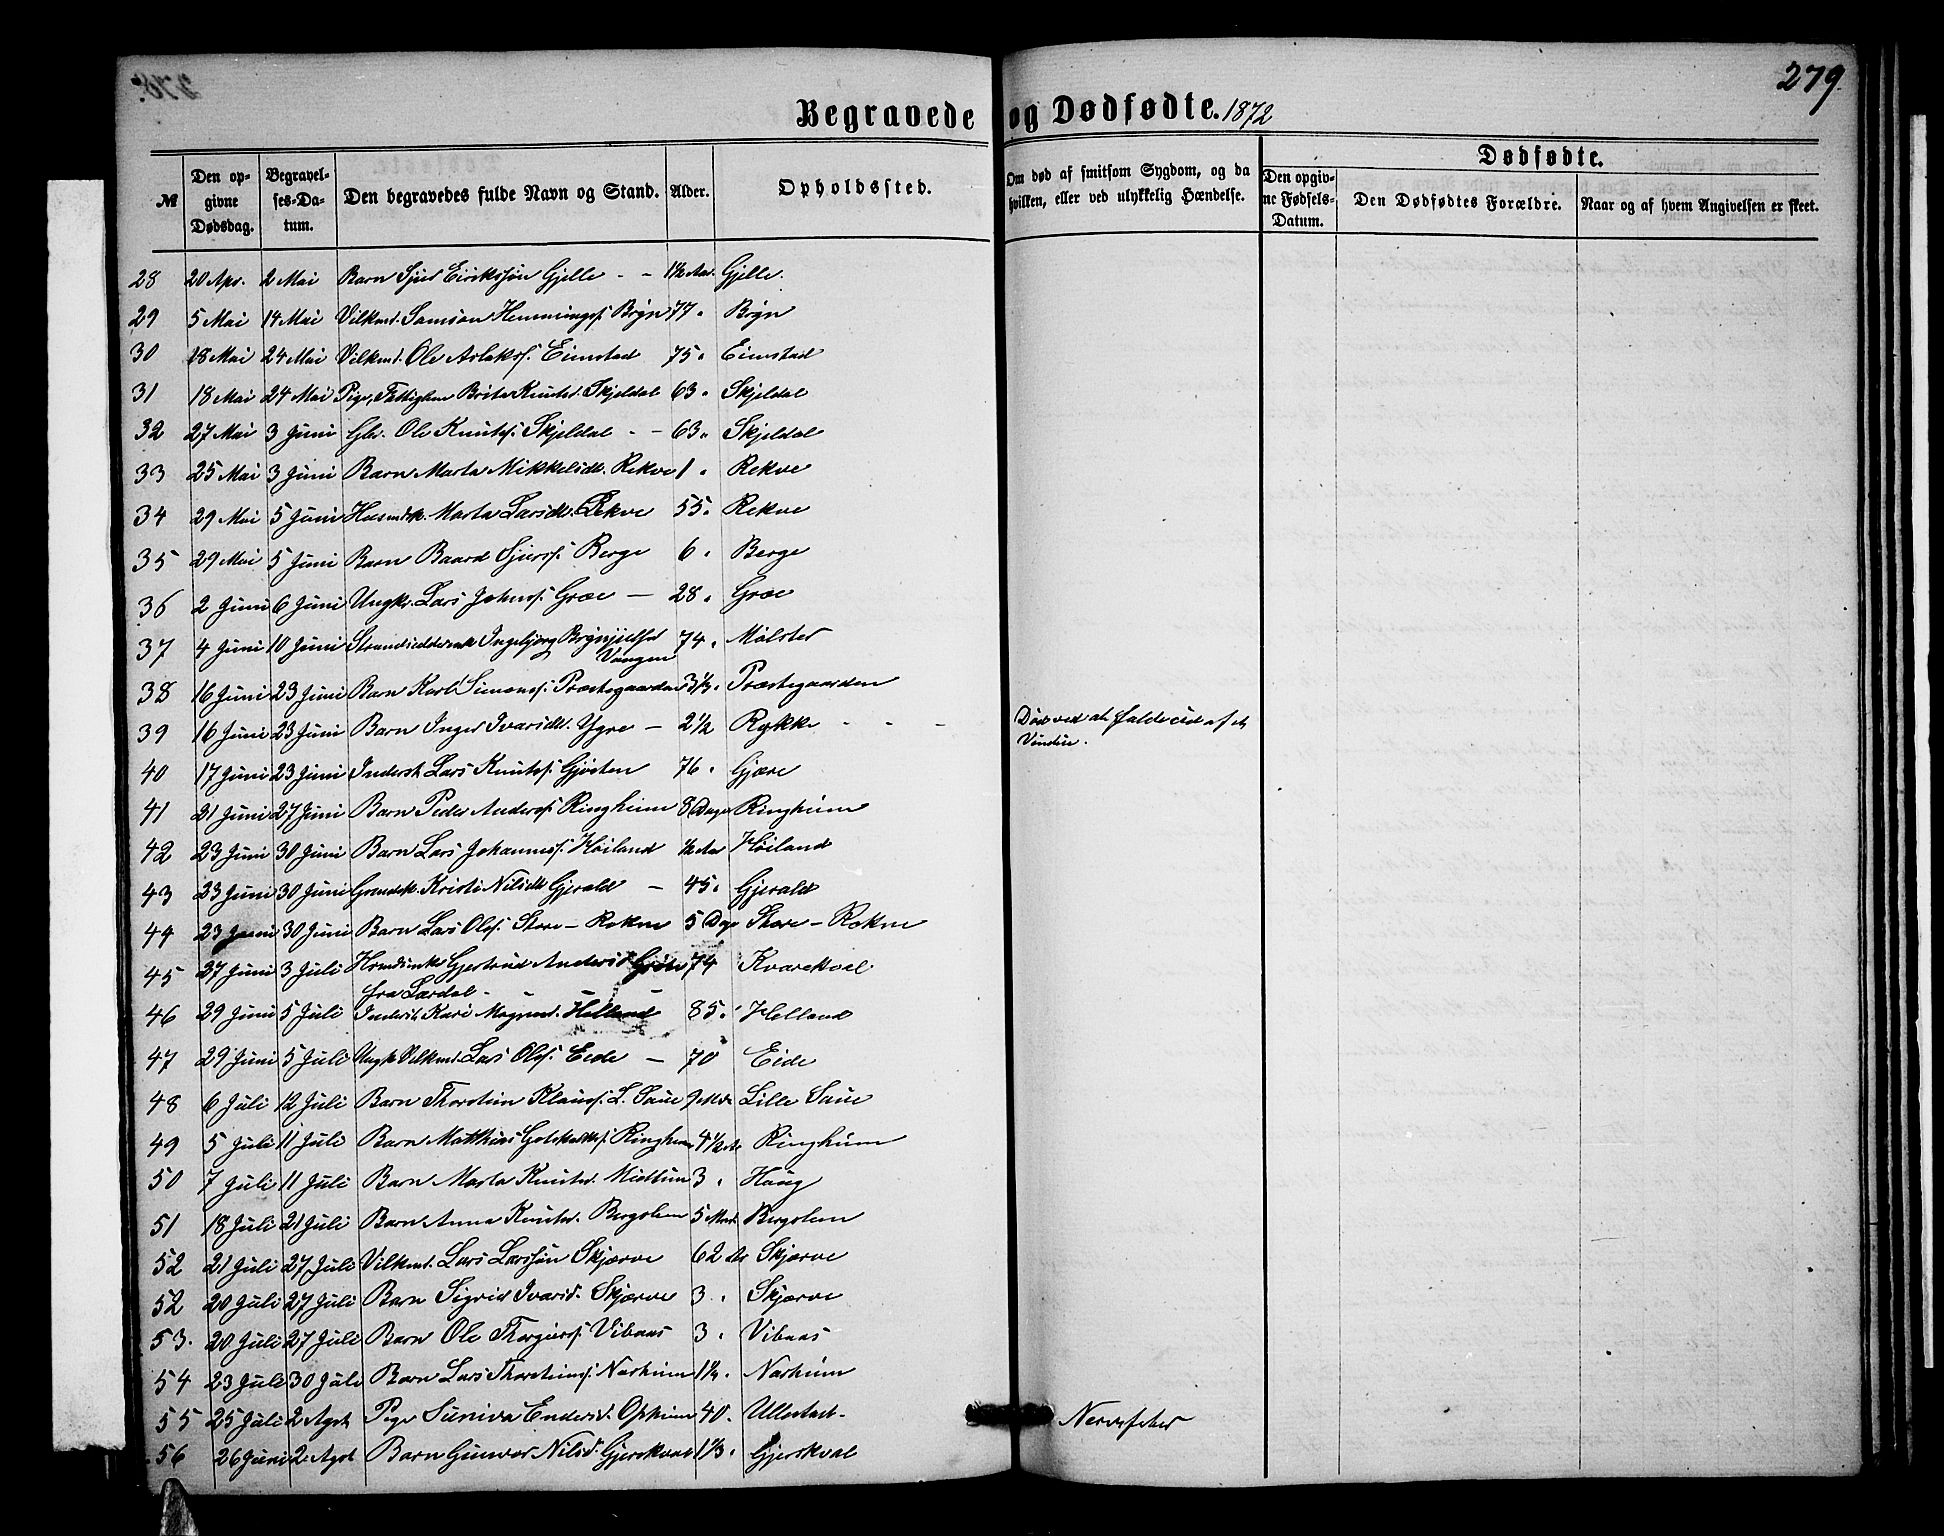 279.
Begravede og Dødfødte. 1872
№ Den opgivne Dødsdag. Begravelses-Datum. Den begravedes fulde Navn og Stand. Alder. Opholdssted. Om død af smitsom Sygdom, og da hvilken, eller ved ulykkelig Hændelse. Dødfødte. Den opgivne Fødsels-Datum. Den Dødfødtes Forældre. Naar og af hvem Angivelsen er skeet.
28 20 Apr. 2 Mai Barn Sjur Eirikssøn Gjelle - - 1½ Aar. Gjelle.
29 5 Mai 14 Mai Vilkmd. Samson Hemmingsf. Bryn 77. Bryn
30 18 Mai 24 Mai Vilkmd. Ole Aslaksf. Eimstad 75. Eimstad
31 18 Mai 24 Mai Pige, Fattiglem Brita Knutsd. Skjeldal 63. Skjeldal
32 27 Mai 3 Juni Gbr. Ole Knutsf. Skjeldal - - 63. Skjeldal
33 25 Mai 3 Juni Barn Marta Mikkelsdt. Rekve 1. Rekve
34 29 Mai 5 Juni Husmdsk. Marta Larsdt. Rekve 55. Rekve
35 29 Mai 5 Juni Barn Baard Sjursf. Berge 6. Berge
36 2 Juni 6 Juni Ungk. Lars Johnsf. Græe - 28. Græe
37 4 Juni 10 Juni Ingebjørg Brynjulfsd 74. Mølster
Vangen
38 16 Juni 23 Juni Barn Karl Simonsf. Præstegaarden 3⅓. Præstegaarden
39 16 Juni 23 Juni Barn Inger Ivarsdt. Ygre - 2½ Rykke - - - Død ved at falde ud af et
Vindue.
40 17 Juni 23 Juni Inderst Lars Knutsf. Gjøsten 76. Gjære
41 21 Juni 27 Juni Barn Peder Andersf. Ringheim 8 Dage Ringheim
42 23 Juni 30 Juni Barn Lars Johannesf. Høiland ½ Aar Høiland
43 23 Juni 30 Juni Kristi Nilsdt Gjerald - 45. Gjerald
44 23 Juni 30 Juni Barn Lars Olsf. Store - Rokne 5 Dage Store - Rokne
45 27 Juni 3 Juli Gjertrud Andersd. 74 Kvarekval
fra Lærdal - -
46 29 Juni 5 Juli Inderst Kari Magnesd. Helland 85. Helland
47 29 Juni 5 Juli Ungk. Vilkmd. Lars Olsf. Eide - 70 Eide
48 6 Juli 12 Juli Barn Thorstein Klausf. L. Saue 9 Mdr Lille Saue
49 5 Juli 11 Juli Barn Matthias Ringheim 4½ Ar Ringheim
50 7 Juli 11 Juli Barn Marta Knutsd. Midttun 3. Haug
51 18 Juli 21 Juli Barn Anna Knutsd. Bergslem 5 Mdr. Bergslem
52 21 Juli 27 Juli Vilkmd. Lars Larssøn Skjærve 62 Ar Skjærve
52 20 Juli 27 Juli Barn Sigrid Ivarsd. Skjærve 3. Skjærve
53. 20 Juli 27 Juli Barn Ole Thorgiersf. Vibaas 3. Vibaas
54 23 Juli 30 Juli Barn Lars Thorsteinsf. Narheim 1½. Narheim
55 25 Juli 2 Agst Pige Suniva Endersd. Opheim 40. Ullestad. Nervefeber
56 26 Juni 2 Agst Barn Gunvor Nilsd. Gjerskval 1⅓. Gjerskval